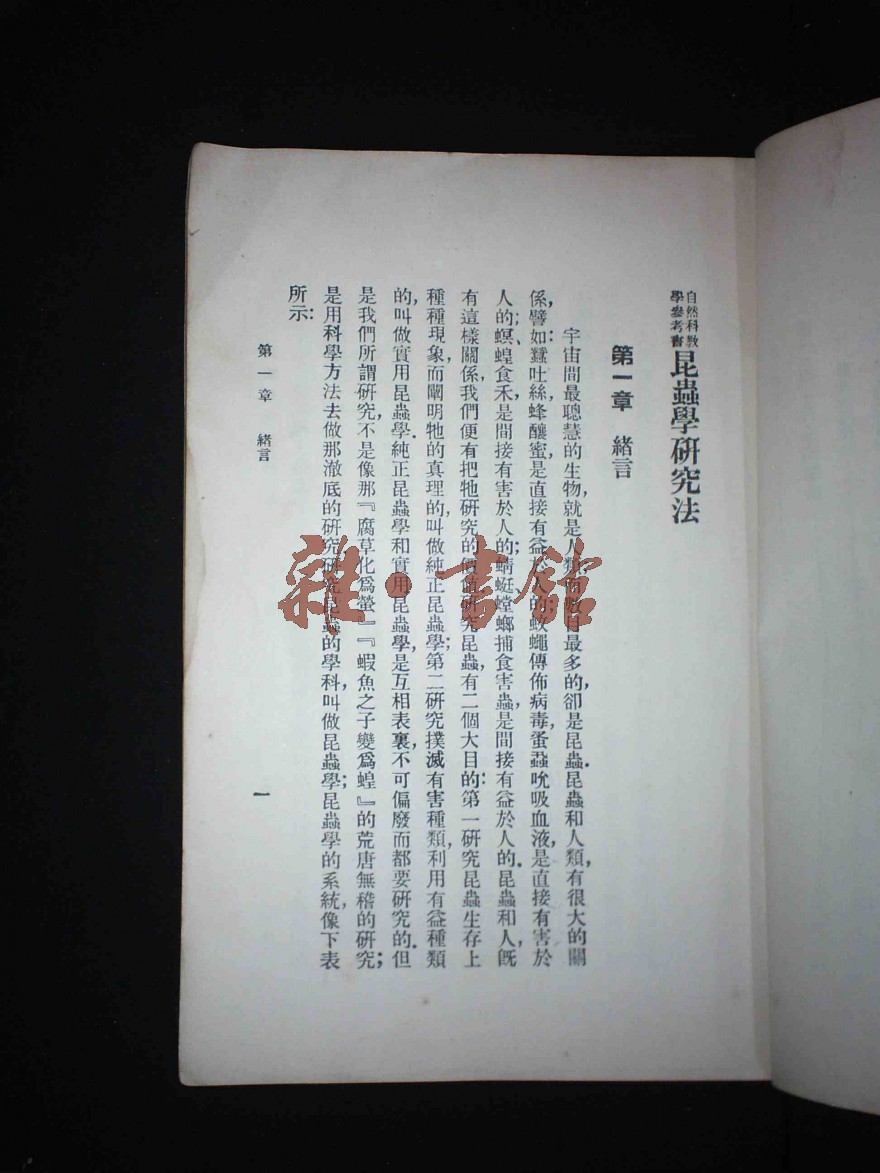 自然科教
學參考書
昆蟲學研究法
第一章　緒言
宇宙間最聰慧的生物，就是人類，而數目最多的，卻是昆蟲．昆蟲和人類，有很大的關
係，譬如：蠶吐絲，蜂釀蜜，是直接有益於人的；蚊蠅傳佈病毒，蚤蝨吮吸血液，是直接有害於
人的；螟、蝗食禾，是間接有害於人的；蜻蜓螳螂捕食害蟲，是間接有益於人的．昆蟲和人，旣
有這樣關係，我們便有把牠研究的價值．研究昆蟲，有二個大目的：第一研究昆蟲生存上
種種現象，而闡明牠的真理的，叫做純正昆蟲學；第二研究撲滅有害種類，利用有益種類
的，叫做實用昆蟲學．純正昆蟲學和實用昆蟲學，是互相表裏，不可偏廢而都要研究的．但
是我們所謂研究，不是像那『腐草化爲螢』『蝦魚之子變爲蝗』的荒唐無稽的研究；
是用科學方法去做那澈底的研究．研究昆蟲的學科，叫做昆蟲學；昆蟲學的系統，像下表
所示：
第一章　緒言
一
雜·書館